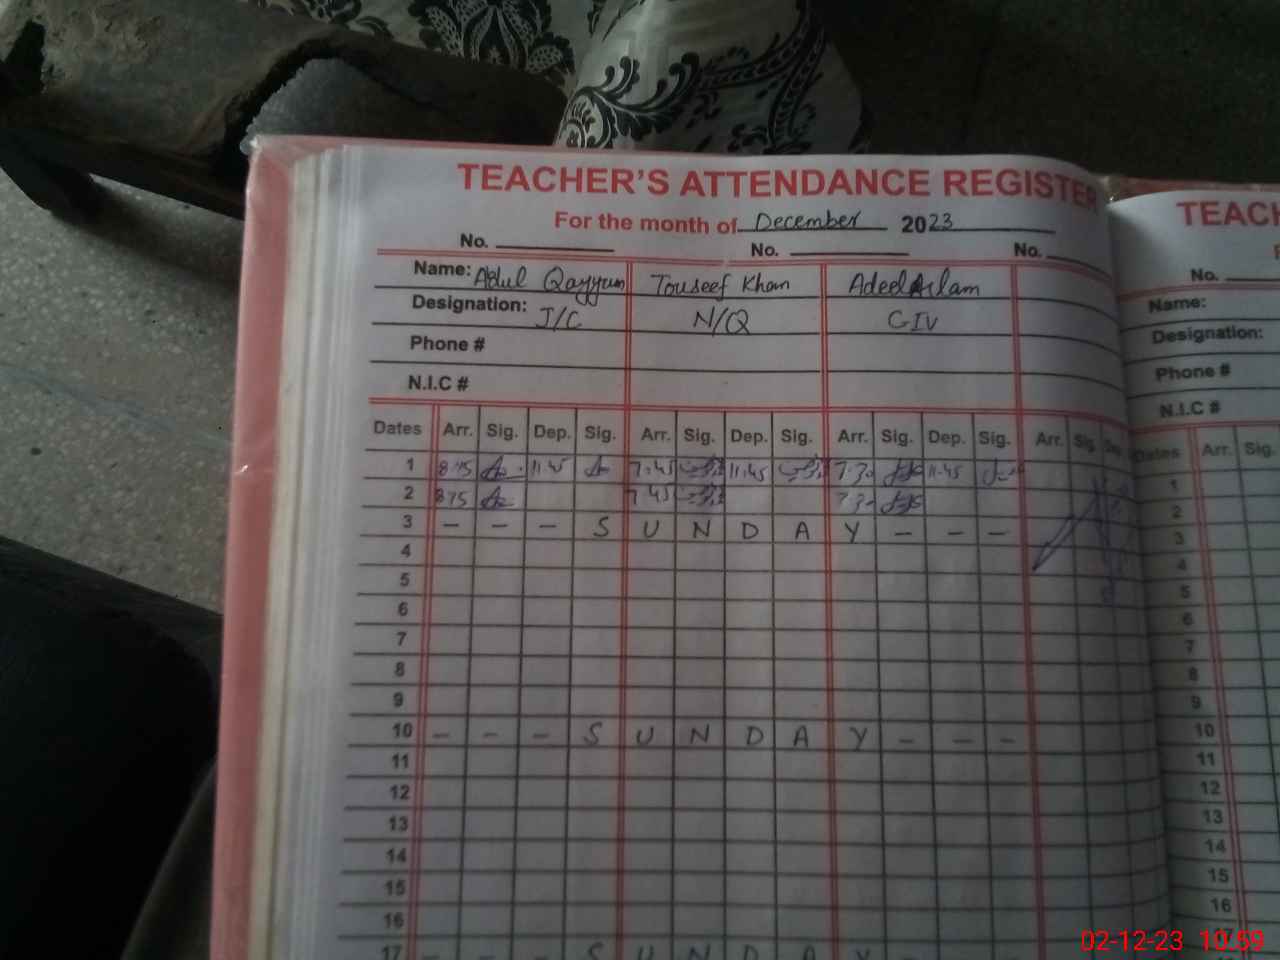 TEACHER'S ATTENDANCE REGISTER
For the month of December 2023
No. No. No.
Name: Abdul Qayyum Touseef Khan Adeel Aslam
Designation: J/C N/Q CIV
Phone #
N.I.C #
Dates Arr. Sig. Dep. Sig. Arr. Sig. Dep. Sig. Arr. Sig. Dep. Sig. Arr. Sig. Dep.
1 8:45 11.45 7.45 11.45 7.30 11.45
2 7.45 7.30
3 - - - S U N D A Y - - -
4
5
6
7
8
9
10 - - - S U N D A Y - - -
11
12
13
14
15
16
17 - - S U N D A Y
TEACH
No.
Name:
Designation:
Phone #
N.I.C #
Dates Arr. Sig.
1
2
3
4
5
6
7
8
9
10
11
12
13
14
15
16
02-12-23 10:59